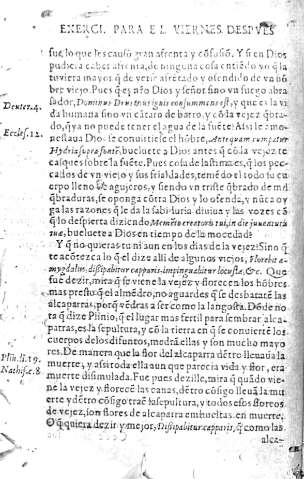 EXERCI. PARA EL VIERNES DESPVES
fue, lo que les causò gran afrenta y cõfusiõ. Y si en Dios
pudiera caber afrenta, de ninguna cosa entiẽdo yo q̃ la
tuviera mayor q̃ de verse afrẽtado y ofendido de vn hõ
bre viejo. Pues que, nr̃o Dios y señor sino vn fuego abra
Deuter. 4.
sador, Dominus Deus tuus ignis consummens est, y que es la vi
da humana sino vn cãtaro de barro, y cõ la vejez q̃bra
do, q̃ ya no puede tener el agua de la fuẽte. Assi le amo
Eccles. 12.
nestaua Dios se conuierte el hõbre, Antequam rumpatur
Hydria supra fontẽ, bueluete a Dios antes q̃ cõ la vejez te
casques sobre la fuẽte. Pues cosa de lastima es, q̃ los pec
cados de vn viejo y sus frialdades, temẽdo el todo su cu
erpo lleno de agujeros, y siendo vn triste q̃brado de mil
q̃braduras, se oponga cõtra Dios y lo ofenda, y nũca oy
ga las razones q̃ le da la sabiduria diuina y las vozes cõ
q̃ lo despierta diziendo, Memẽto creatoris tui, in die juuentutis
tuæ, bueluete a Dios en tiempo de la mocedad.
Y q̃ no quieras tu ni aun en los dias de la vejez! Sino q̃
te acõtezca lo q̃ el dize alli de algunos viejos, Florebit a-
mygdalus, dissipabitur capparis, impinguabitur locusta, &c. Que
fue dezir, mira q̃ si viene la vejez y florecen los hõbres
mas presto q̃ el almẽdro, no aguardes q̃ se desbaratẽ las
alcaparras, porq̃ vẽdras a ser como la langosta. Dõde no
ta q̃ dize Plinio, q̃ el lugar mas fertil para sembrar alca
parras, es la sepultura, y cõ la tierra en q̃ se conuierte los
Plin. li. 19.
cuerpos de los difuntos, medrã ellas y son mucho mayo
res. De manera que la flor del alcaparra dẽtro lleuaua la
Nathis æ. 8.
muerte, y assi toda ella aun que parecia vida y flor, era
muerte disimulada. Fue pues dezille, mira q̃ quãdo vie
ne la vejez, y florecẽ las canas, dẽtro cõsigo lleuã la mu
erte y dẽtro cõsigo traẽ la sepultura, y todos essos floreos
de vejez, son flores de alcaparra embueltas en muerte.
O q̃ quiera dezir y mejor; Dissipabitur capparis, q̃ como las
alca-